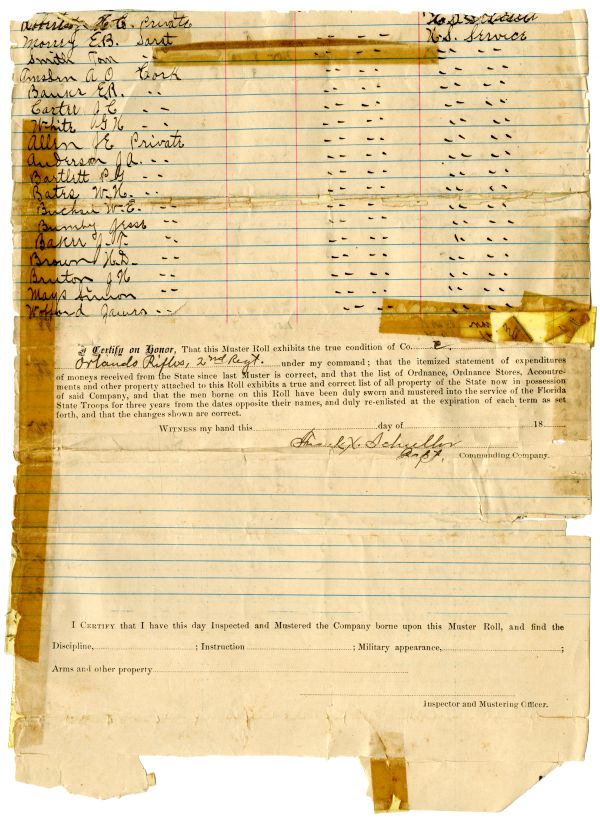 H. C. Private
Morey E.B. Sergt -- -- U.S. Service
Smith Tom -- -- -- --
A O Cork -- -- -- --
Banks E.R. -- -- -- -- --
Carter J C -- -- -- -- --
White G H -- -- -- -- --
Allen J E Private -- -- -- --
Anderson J A. -- -- -- -- --
Bartlett P G -- -- -- -- --
Bates W. H. -- -- -- -- --
W. E. -- -- -- -- --
Bumby Jesse -- -- -- -- --
Baker J. F. -- -- -- -- --
Brown H. D. -- -- -- -- --
Bruton J H -- -- -- -- --
Mays Simon -- -- -- -- --
Wofford James -- -- -- -- --
I Certify on Honor, That this Muster Roll exhibits the true condition of Co.
Orlando Rifles, 2nd Regt. under my command; that the itemized statement of expenditures
of moneys received from the State since last Muster is correct, and that the list of Ordnance, Ordnance Stores, Accoutre-
ments and other property attached to this Roll exhibits a true and correct list of all property of the State now in possession
of said Company, and that the men borne on this Roll have been duly sworn and mustered into the service of the Florida
State Troops for three years from the dates opposite their names, and duly re-enlisted at the expiration of each term as set
forth, and that the changes shown are correct.
WITNESS my hand this day of 18
X. Schuller
Capt. Commanding Company.
I CERTIFY that I have this day Inspected and Mustered the Company borne upon this Muster Roll, and find the
Discipline, ; Instruction ; Military appearance, ;
Arms and other property
Inspector and Mustering Officer.